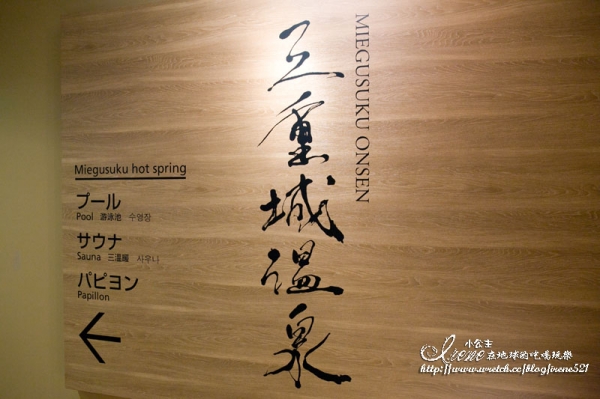 三重城温泉
MIEGUSUKU ONSEN
Miegusuku hot spring
プール
Pool 游泳池 수영장
サウナ
Sauna 三溫暖 사우나
パピヨン
Papillon
小公主
Irene在地球的吃喝玩樂
http://www.wretch.cc/blog/irene521